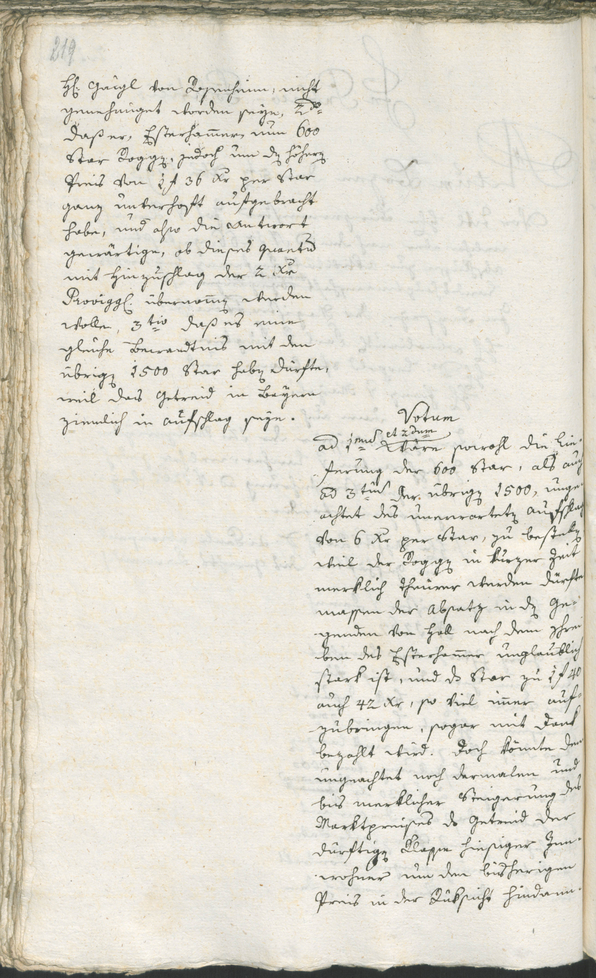 219
H. Gaigl von Rosenheim, nicht
genehmiget worden seye, 2do
daß er, Esterhammer nun 600
Star Roggen, jedoch um den höhern
Preis von 1 f 36 Xr per Star
ganz unverhoft aufgebracht
habe, und also die Antwort
gewärtige, ob dieses Quantum
mit Hinzuschlag der 2 Xr
Provigg. übernommen werden
wolle, 3tio daß es eine
gleiche Bewandtnis mit den
übrigen 1500 Star haben dürfte,
weil das Getreid in Bayern
ziemlich in aufschlag seye.
Votum
ad 1mum et 2dum Wäre sowohl die Lie-
ferung der 600 Star, als auch
ad 3tium der übrigen 1500, unge-
achtet des unerwarteten aufschlag
von 6 Xr per Star, zu bestellen
weil der Roggen in kurzer Zeit
merklich theurer werden dürfte
massen der Absatz in den Ge-
genden von Hall nach dem schrei-
ben des Esterhammer unglaublich
stark ist, und das Star zu 1 f 40
auch 42 Xr, so viel immer auf-
zubringen, sogar mit Dank
bezahlt wird. Doch könnte dem
ungeachtet noch dermalen und
bis merklicher Steigerung des
Marktpreises das Getreid der
dürftigen Classe hiesiger Inn-
wohner um den bisherigen
Preis in der Rüksicht hindann-